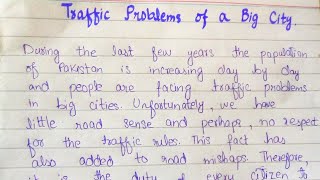 Traffic Problems of a Big City.
During the last few years the population
of Pakistan is increasing day by day
and people are facing traffic problems
in big cities. Unfortunately, we have
little road sense and perhaps, no respect
for the traffic rules. This fact has
also added to road mishaps. Therefore,
it is the duty of every citizen to